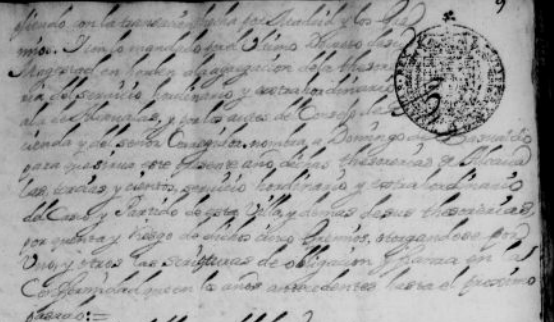 9
con la transacion hecha por Madrid y los Gre
mios. Y en lo mandado por el Ultimo Decreto de su
Magestad en horden a la agregacion de la thesore
ria del servicio hordinario y extrahordinario
a la de Alcavalas, y por los autos del Consejo de
cienda y del señor Corregidor, nombra, a Domingo de
para que sirva este presente año, dichas thesorerias de Alcava
las, tercias, y cientos, servicio hordinario y extrahordinario
del Casco y Partido de esta Villa, y demas de sus thesorerias,
por quenta y riesgo de dichos cinco Gremios, otorgandose por
Unos, y otros las scripturas de obligacion y fianza en la
Conformidad que en los años antecedentes hasta el proximo
pasado:=